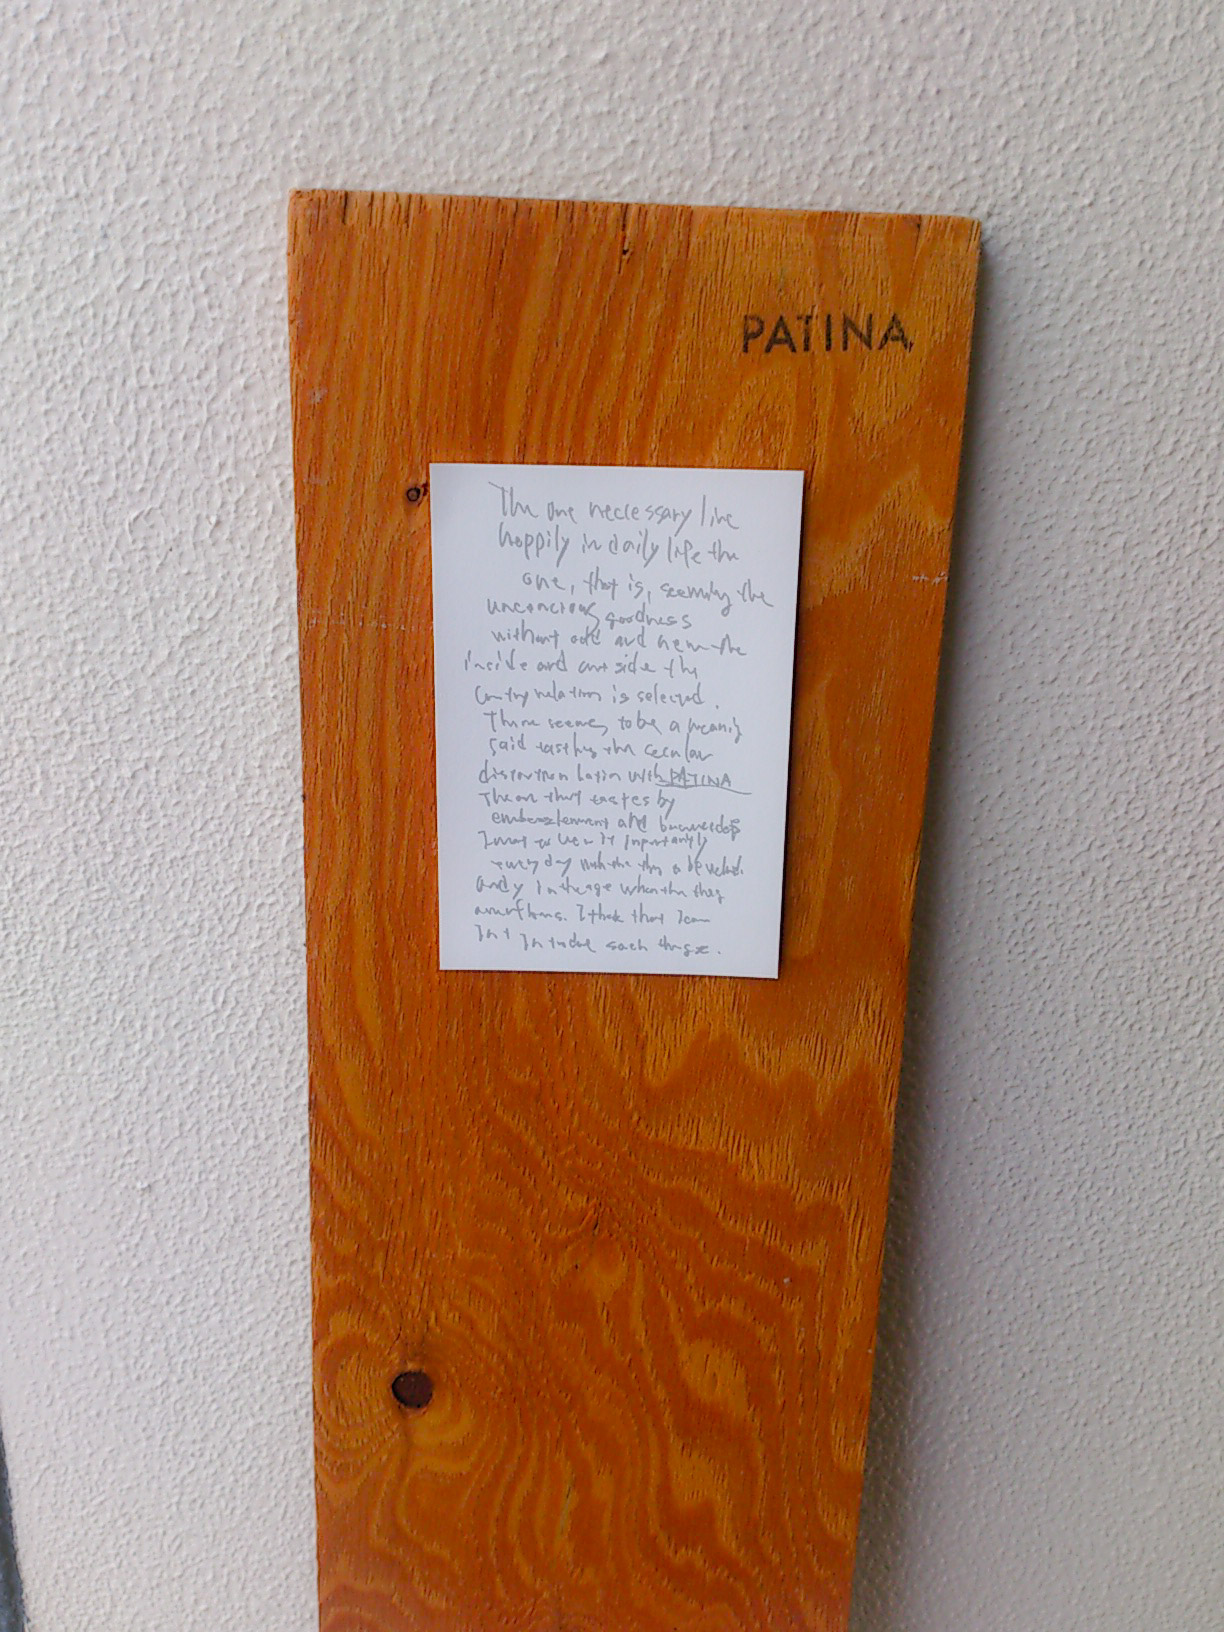 PATINA
The one neclessary live
happily in daily life the
one, that is, seeming the
unconcious goodness
without odd and new the
inside and out side the
country relation is selected.
There seems to be a meaning
said tasting the secular
distortion Latin with PATINA
The one that tastes by
embezzlement and
I want to use it importantly
every day
and y in the age when the they
overflows. I think that I can
such things.